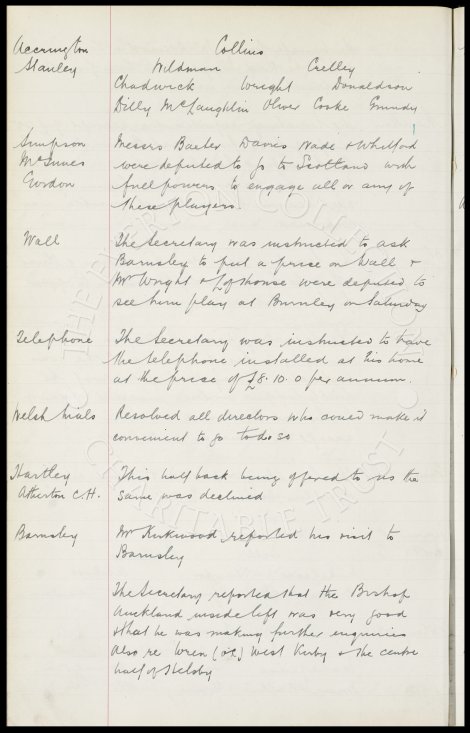 Accrington Collins
Stanley Wildman Crelley
Chadwick Wright Donaldson
Dilly McLaughlin Oliver Cooke Grundy
Simpson Messrs Baxter Davies Wade & Whitford
McInnes were deputed to go to Scotland with
Gordon full powers to engage all or any of
these players.
Wall The Secretary was instructed to ask
Barnsley to put a price on Wall &
Mr Wright & Lofthouse were deputed to
see him play at Burnley on Saturday
Telephone The Secretary was instructed to have
the telephone installed at his home
at the price of £8.10.0 per annum.
Welsh trials Resolved all directors who could make it
convenient to go to do so
Hartley This half back being offered to us the
Atherton C.H. same was declined
Barnsley Mr Kirkwood reported his visit to
Barnsley
The Secretary reported that the Bishop
Auckland inside left was very good
& that he was making further enquiries
also re Wren (OL) West Kirby & the centre
half of Helsby
THE EVERTON COLLECTION
CHARITABLE TRUST